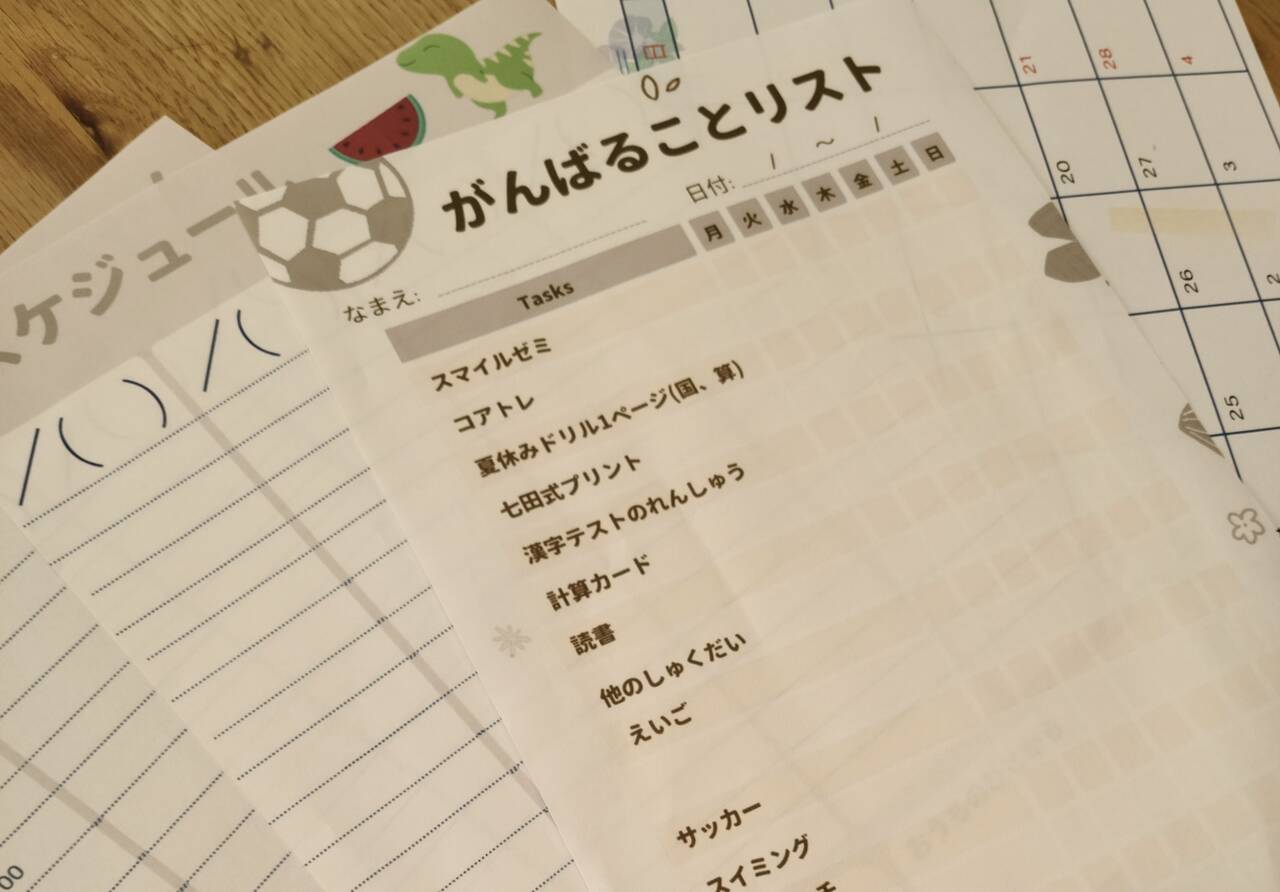 がんばることリスト
日付: / ～ /
なまえ:
Tasks 月 火 水 木 金 土 日
スマイルゼミ
コアトレ
夏休みドリル1ページ(国、算)
七田式プリント
漢字テストのれんしゅう
計算カード
読書
他のしゅくだい
えいご
サッカー
スイミング
ケジュール
/ ( )
/ (
00
日
21 28 4
20 27 3
26 2
25